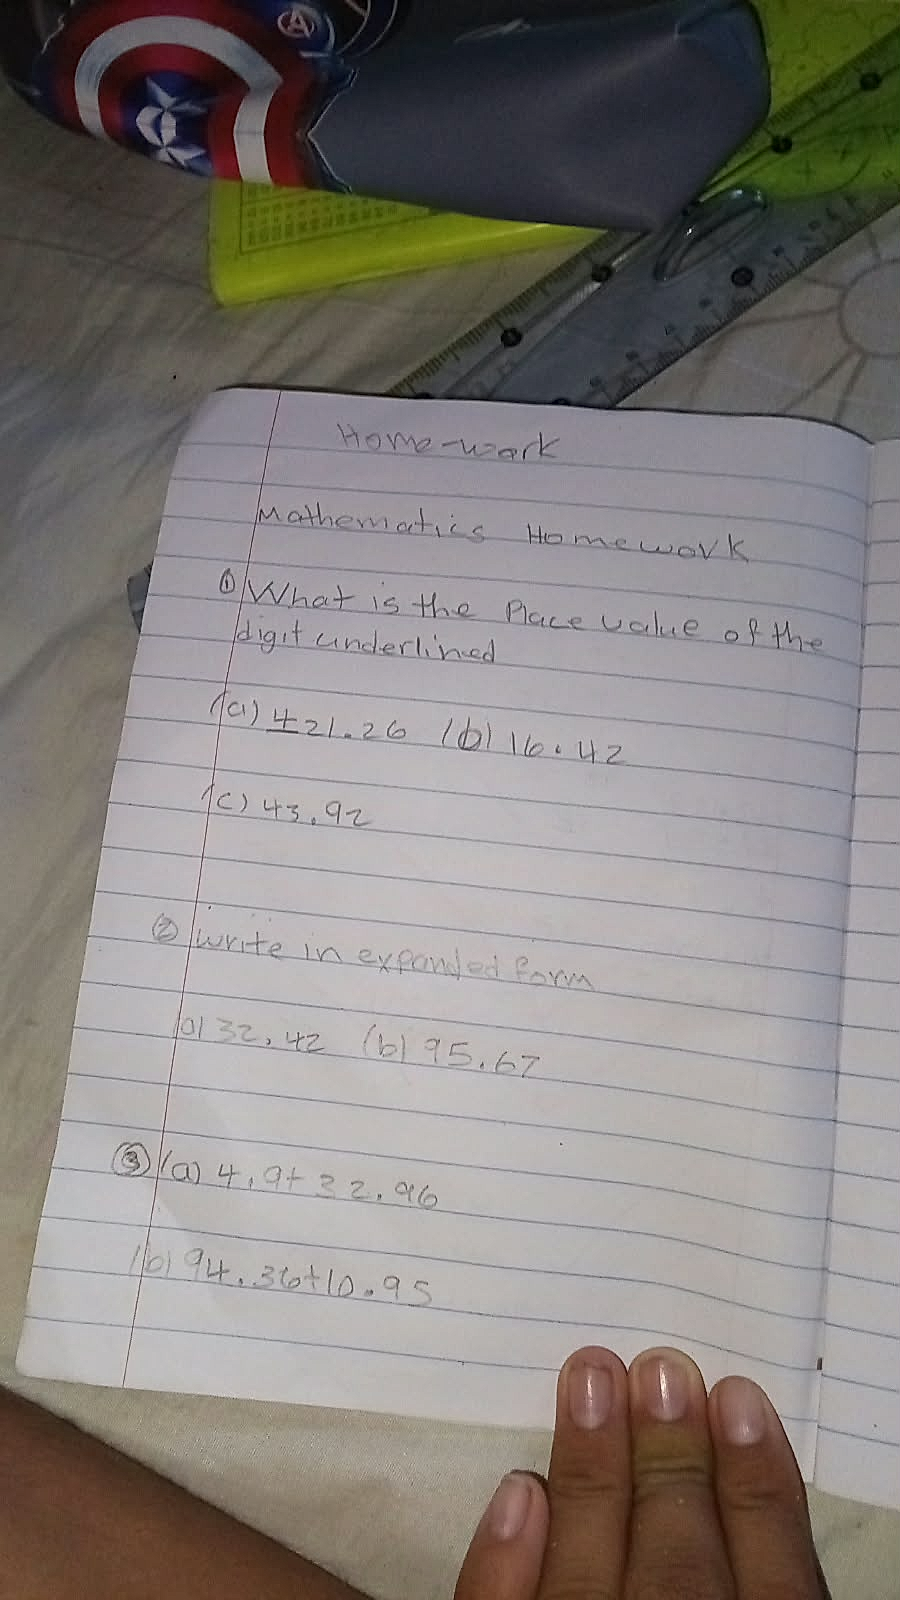 Home-work
Mathematics Homework
① What is the Place value of the
digit underlined
(a) 421.26 (b) 16.42
(c) 43.92
② write in expanded form
(a) 32.42 (b) 95.67
③ (a) 4.9+32.96
(b) 94.36+10.95